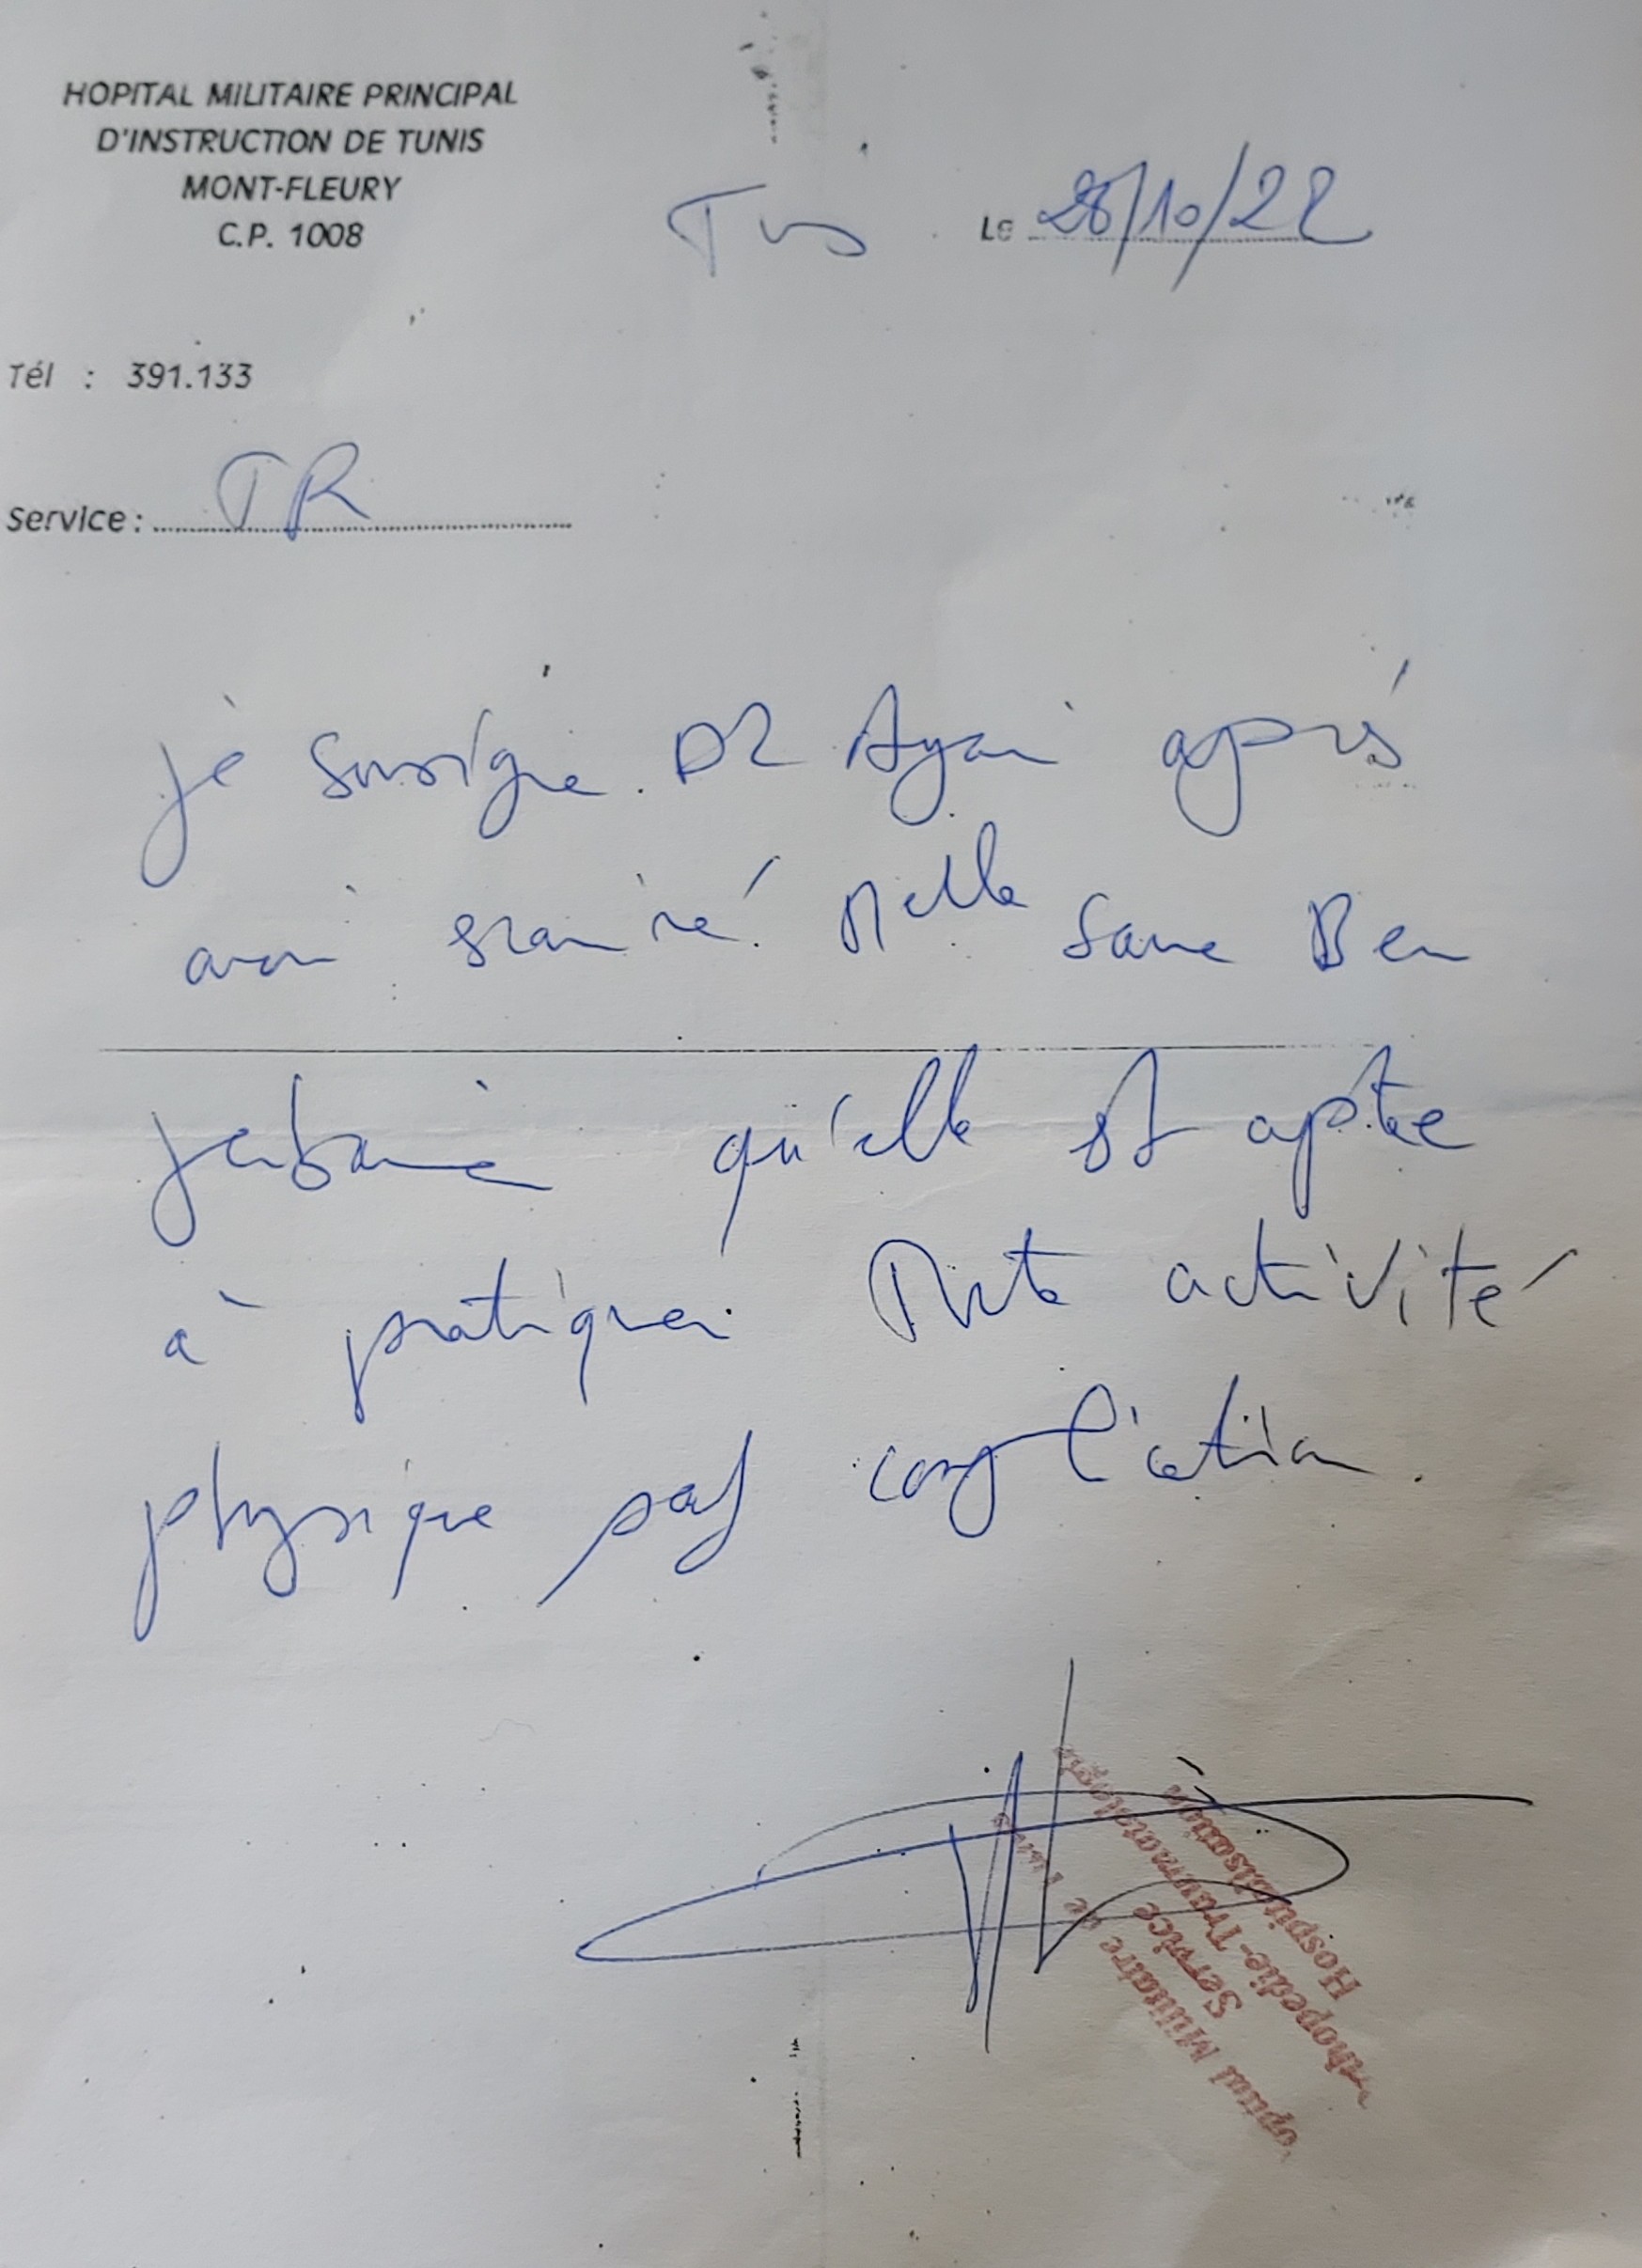 HOPITAL MILITAIRE PRINCIPAL
D'INSTRUCTION DE TUNIS
MONT-FLEURY
C.P. 1008
Le 28/10/22
Tél : 391.133
Service : TR
je sousigne DR Ayari après
avoir examiné Melle Ben
qu'elle est apte
à pratiquer Toute activité
physique sauf complication.
Hopital Militaire
de Tunis
Service
Orthopedie-Traumatologie
Hospitalisation